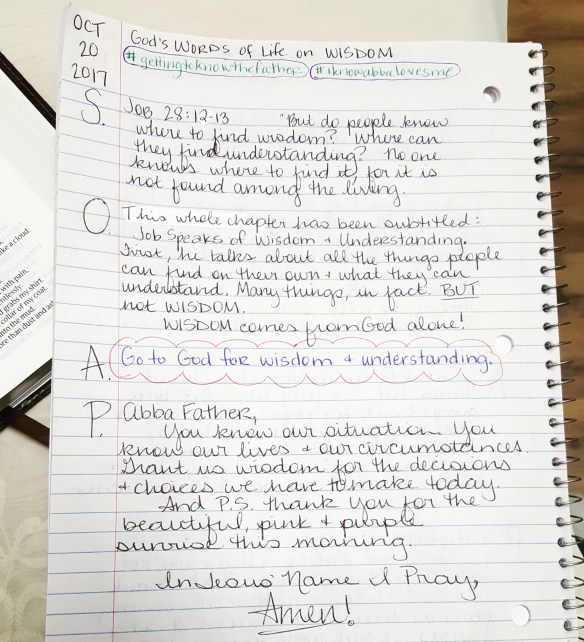 OCT
20
2017
God's Words of Life on WISDOM
#gettingtoknowthefather #iknowabbalovesme
S.
Job 28:12-13 "But do people know
where to find wisdom? Where can
they find understanding? No one
knows where to find it, for it is
not found among the living.
O
This whole chapter has been subtitled:
Job Speaks of Wisdom + Understanding.
First, he talks about all the things people
can find on their own + what they can
understand. Many things, in fact BUT
not WISDOM.
WISDOM comes from God alone!
A.
Go to God for wisdom + understanding.
P.
Abba Father,
You know our situation. You
know our lives + our circumstances.
Grant us wisdom for the decisions
+ choices we have to make today.
And P.S. thank You for the
beautiful, pink + purple
sunrise this morning.
In Jesus' Name I Pray,
Amen!
like a cloud.
with pain,
grabs my shirt.
collar of my coat.
into the mud.
more than dust and